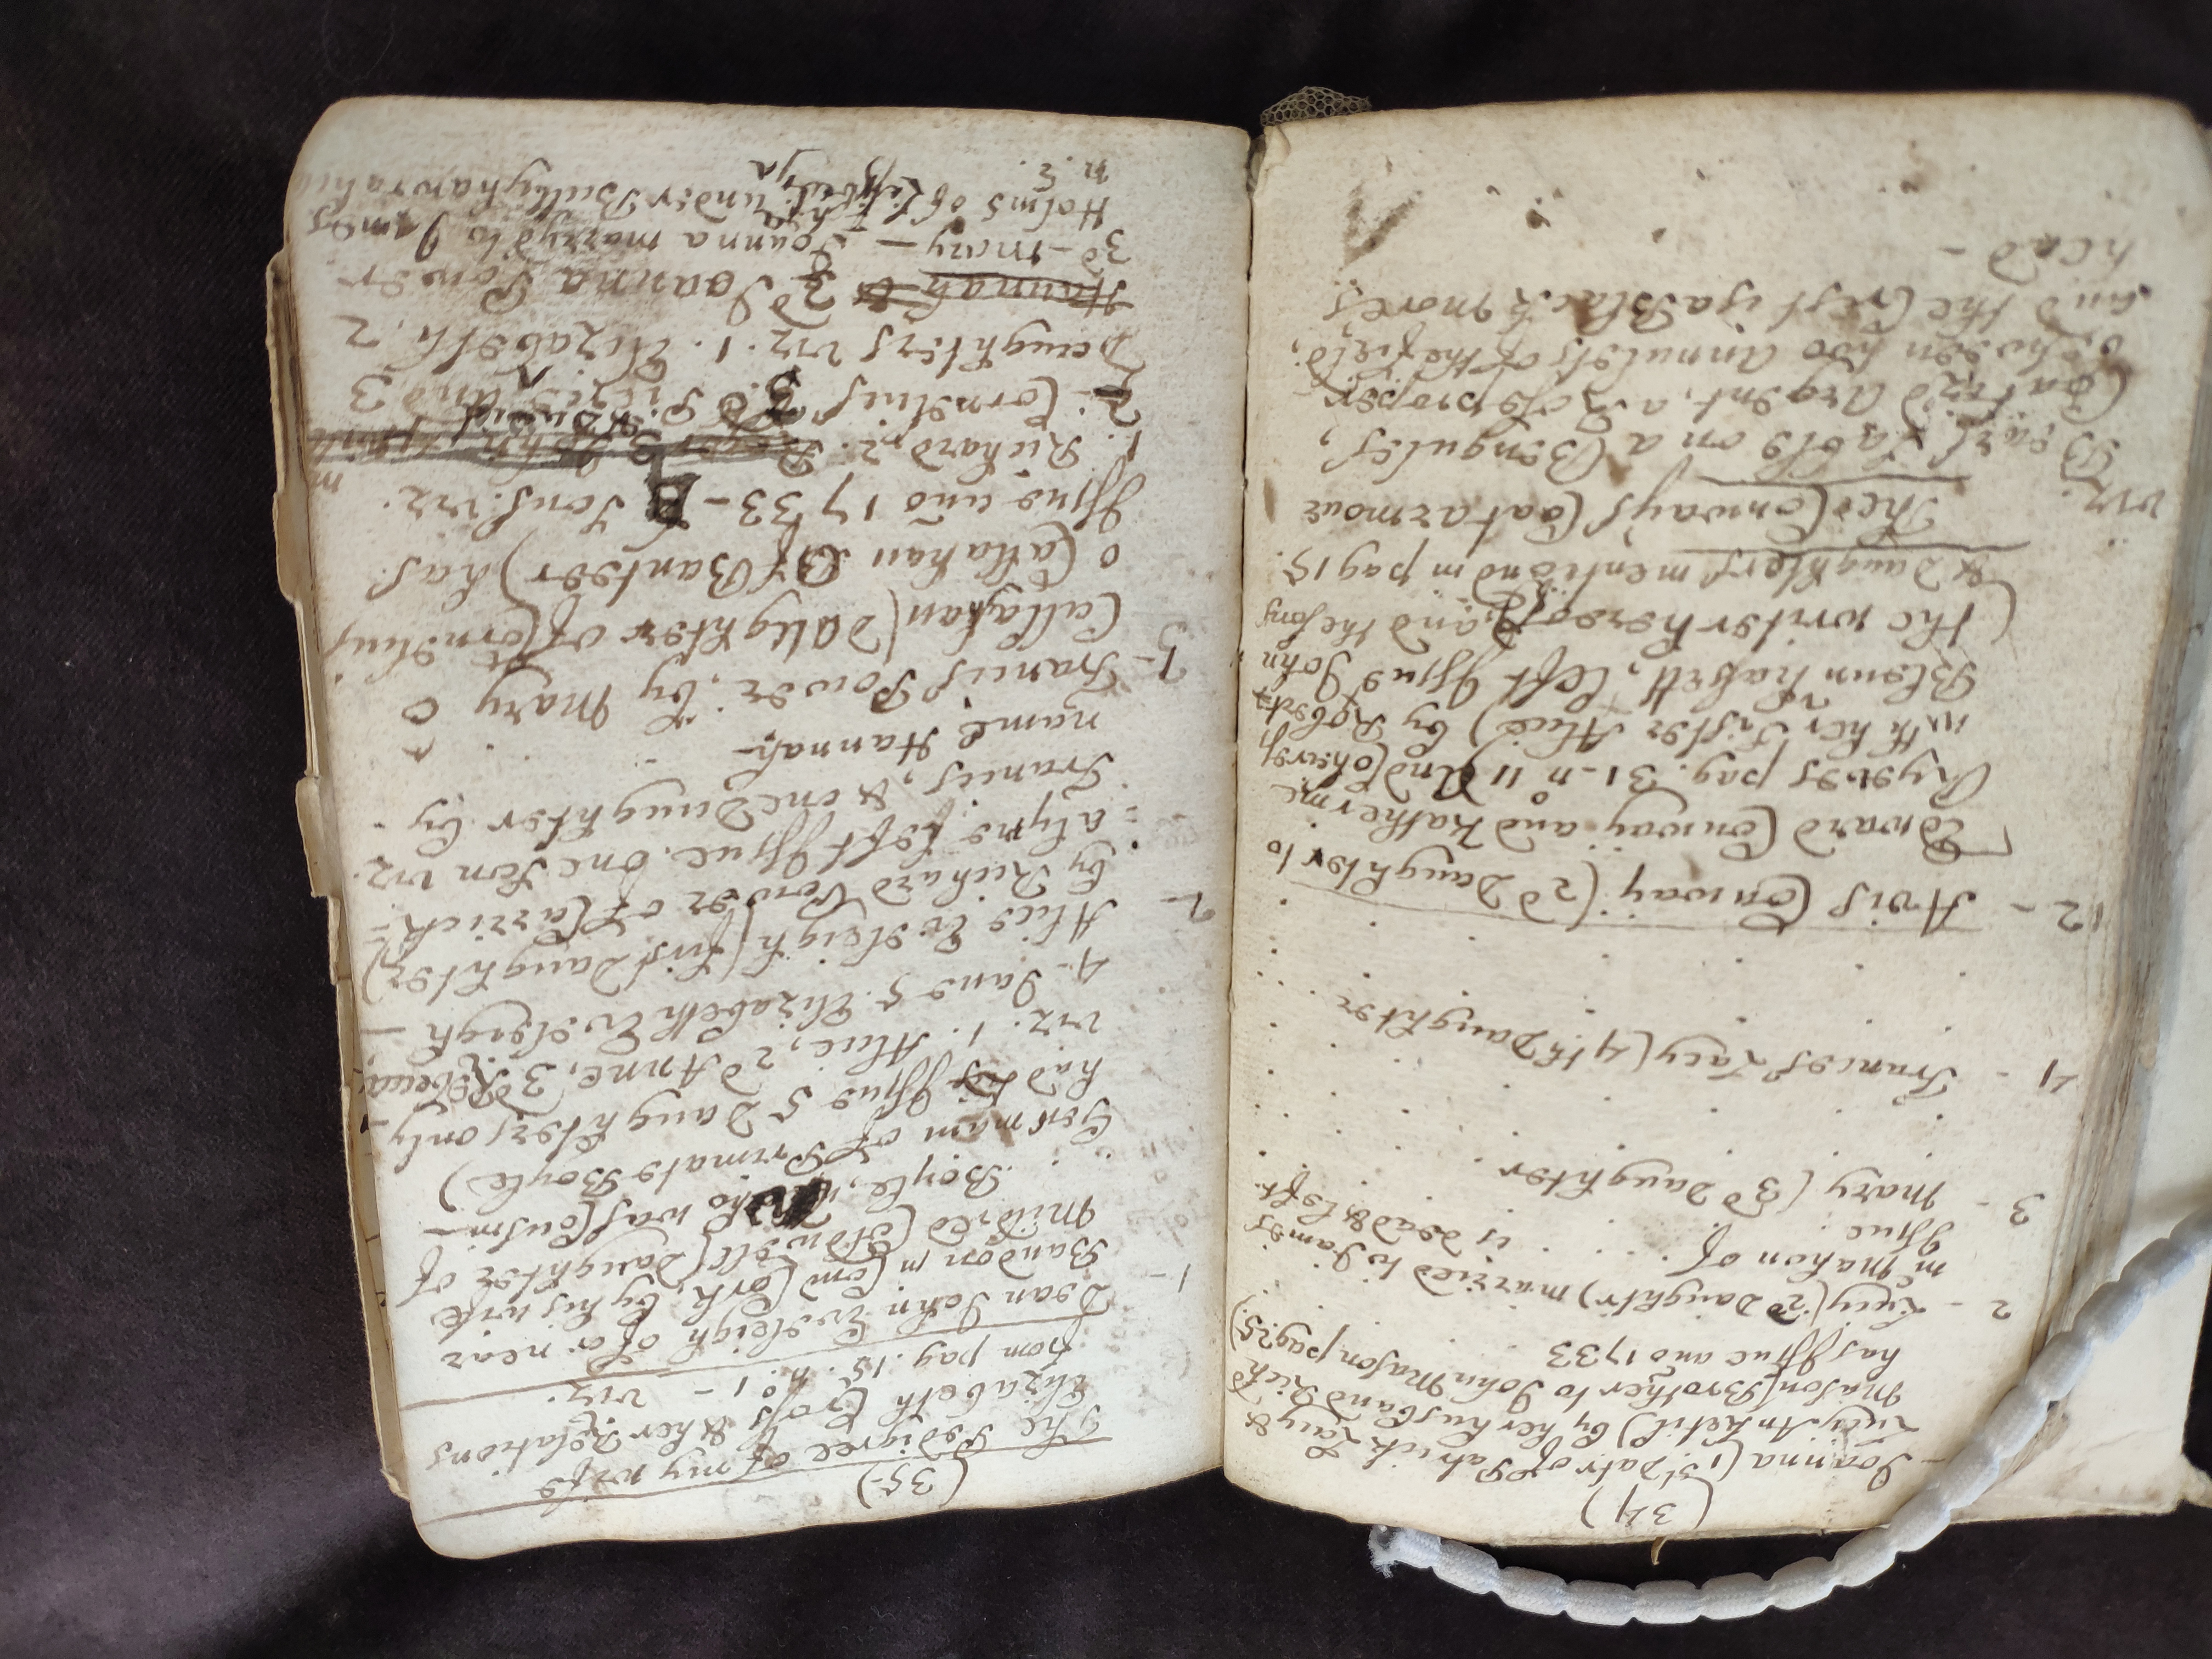 (34)
- Joanna (1st datr of Patrick Lacy &
Lucy Anketil) by her husband Richd
Mason (Brother to John Mason pag 25)
has Issue ano 1733
2 - Lucy (2d Daughtr) married to James
mc Mahon of . . . . is dead & left
Issue
3 - Mary (3d Daughter
4 - Frances Lacy (4th Daughter
12 - Avis Conway (2d Daughter to
Edward Conway and Katherine
Ryeves pag. 31 - no 11 And Coheress
with her Sister Alice) by Robert
Blennerhasett, left Issue John
(the writer hereof) and the sons
& Daughters mentiond in pag 15.
The Conways Coat armour
viz. Bears Sable on a Bengules,
Cottizd Argent, a Rose proper
between two Annulets of the field,
and the Crest is a Blackmores
head -
(35)
The Pedigree of my wife
Elizabeth Cross & her Relations
from pag. 15. n. 1 - viz.
1 - Dean John Evsleigh of or near
Bandon in Com Cork, by his wife
Mildred Stowell (Daughter of
Boyle, who was Cousin
German of Primate Boyle)
had Issue 5 Daughters only
viz. 1. Alice, 2d Anne, 3d Rebecca,
4. Jane 5. Elizabeth Evsleigh -
2 - Alice Evsleigh (first Daughter)
by Richard Power of Carrick=
=alyne left Issue. One Son viz.
Francis, & one Daughter by
name Hannah -
3 - Francis Power, by Mary O
Callaghan (Daughter of Cornelius
o Callahan of Banteer) has
Issue ano 1733 - Sons. viz.
1. Richard, 2.
Cornelius and 3
Daughters viz. 1. Elizabeth, 2
Hannah Joanna Power
3d - Mary - Joanna maryd to James
Holms of under Ballyhawrahen
n. 2.